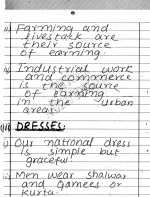 ii) Farming and
livestock are
their source
of earning.
iv) Industrial work
and commerce
is the source
of earning
in the urban
areas.
(iii) DRESSES:
i) Our national dress
is simple but
graceful.
ii) Men wear shalwar
and qamees or
kurta.